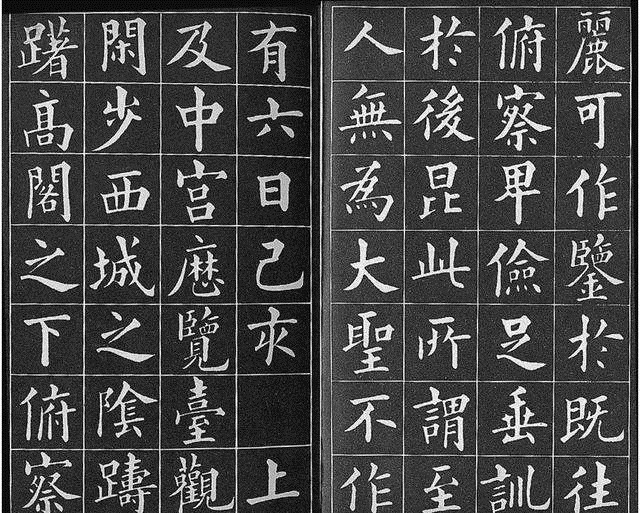 麗可作鑒於既往
俯察卑儉足垂訓
於後昆此所謂至
人無為大聖不作
有六日己亥上
及中宮歷覽臺觀
閑步西城之陰躊
躇高閣之下俯察